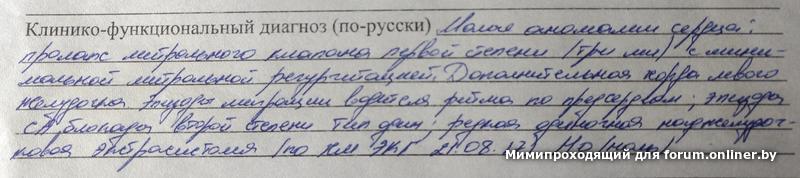 Клинико-функциональный диагноз (по-русски) Малая аномалии сердца:
пролапс митрального клапана первой степени (три мм) с мини-
мальной митральной регургитацией. Дополнительная хорда левого
желудочка. Эпизоды миграции водителя ритма по предсердиям; эпизоды
СА блокады второй степени тип один; редкая одиночная наджелудоч-
ковая экстрасистолия (по ХМ ЭКГ 21.08.17) Но (ноль)
Мимипроходящий для forum.onliner.by